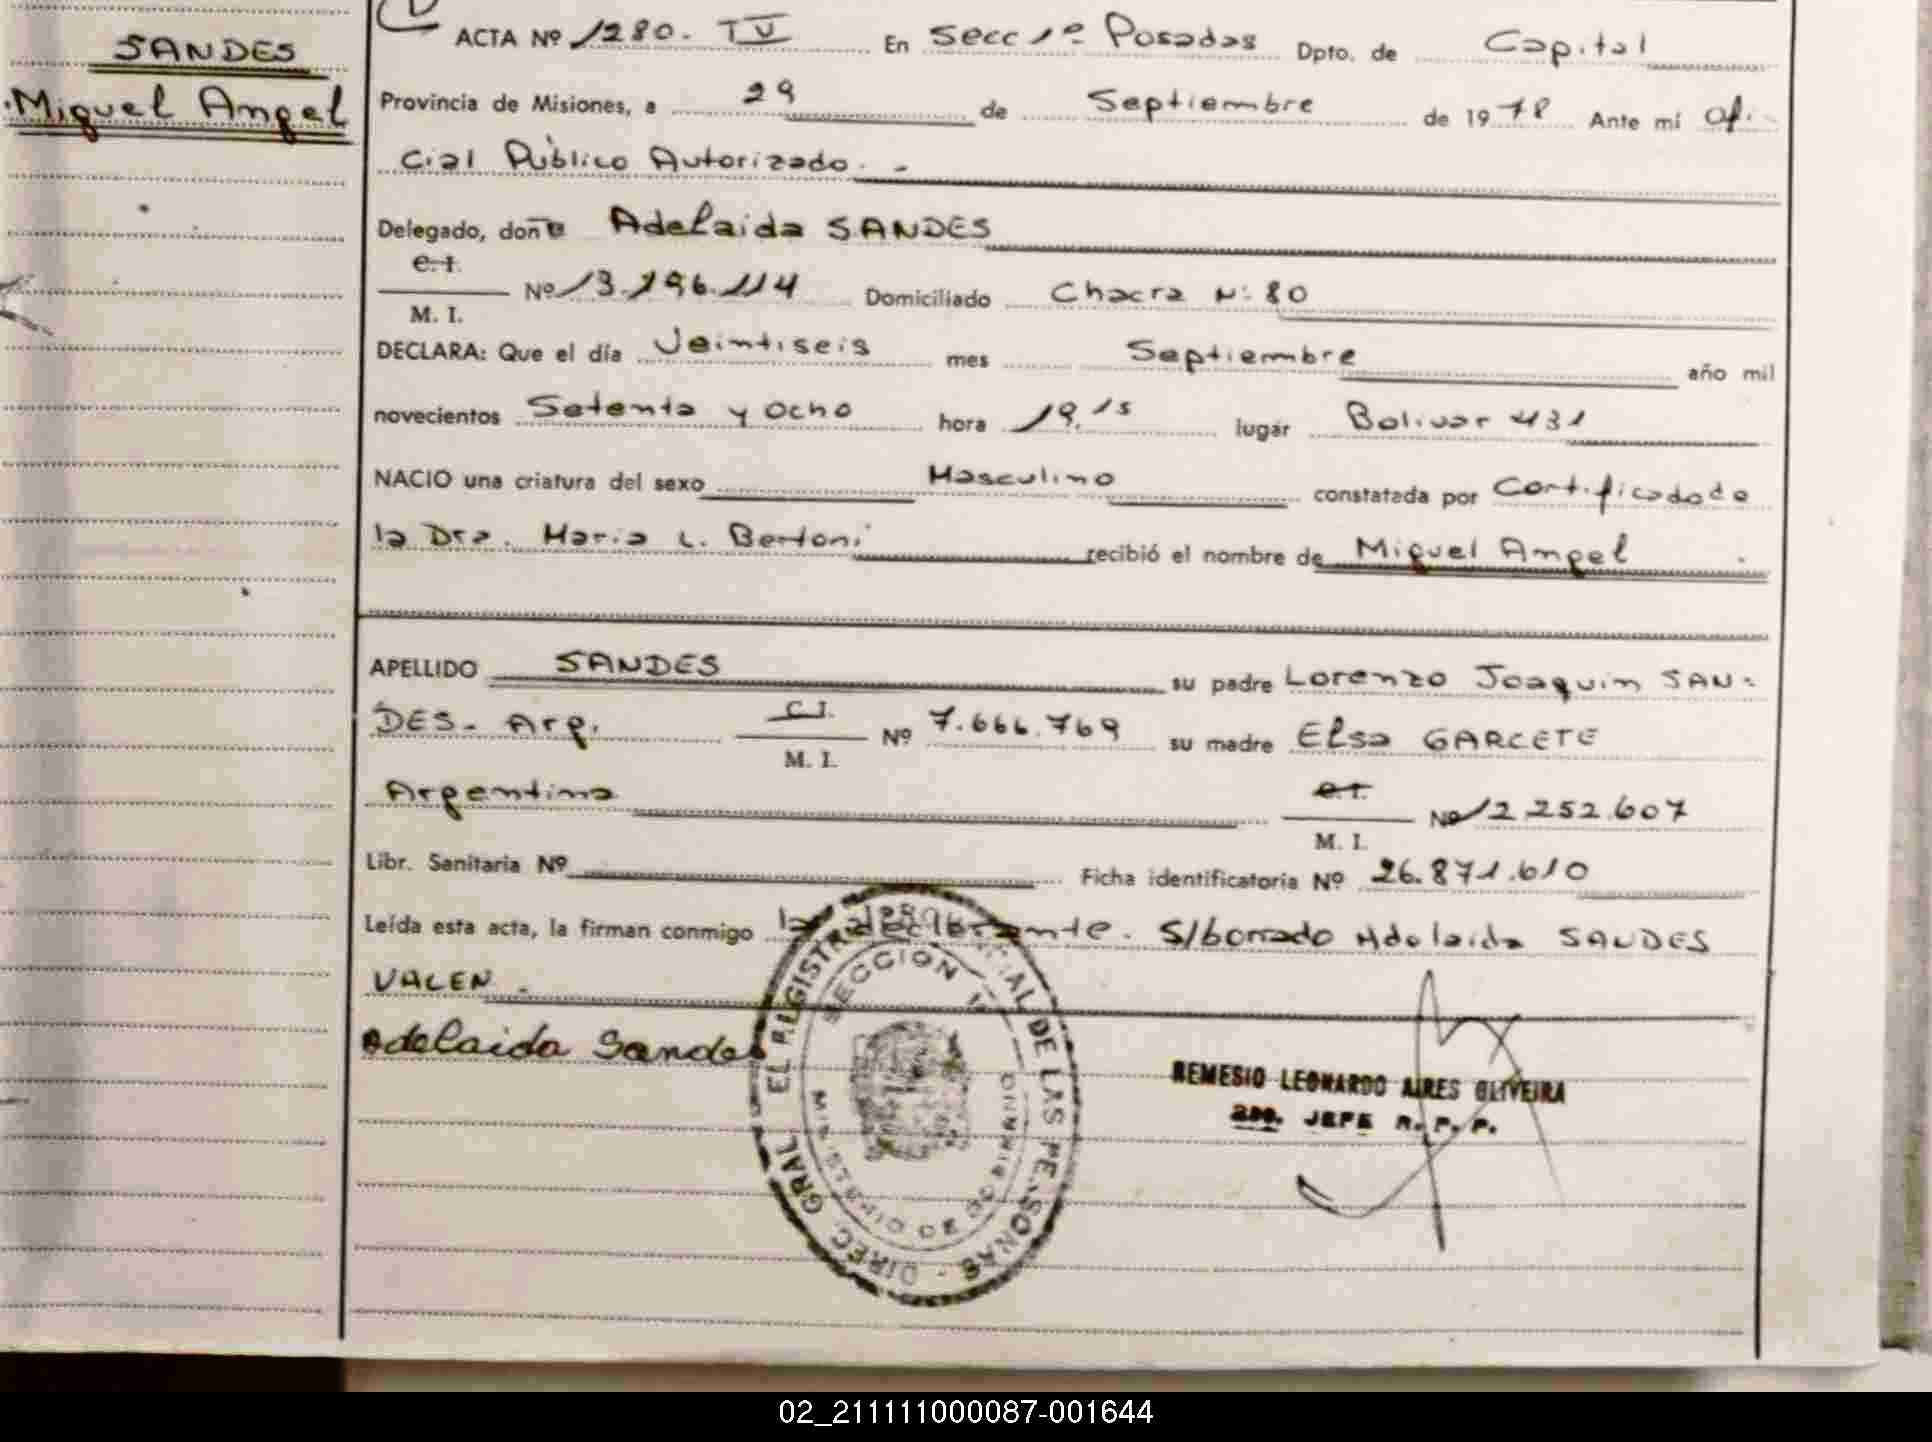 SANDES
Miguel Angel
ACTA Nº 1280. TV En Secc 1º Posadas Dpto. de Capital
Provincia de Misiones, a 29 de Septiembre de 1978 Ante mí ofi-
cial Público Autorizado. -
Delegado, doña Adelaida SANDES
C.I.
M. I. Nº 13.796.114 Domiciliado Chacra Nº 80
DECLARA: Que el día Veintiseis mes Septiembre año mil
novecientos Setenta y Ocho hora 19.15 lugar Bolivar 431
NACIO una criatura del sexo Masculino constatada por Certificado de
la Dra. Maria L. Bertoni recibió el nombre de Miguel Angel
APELLIDO SANDES su padre Lorenzo Joaquin SAN-
DES- Arg. C.I. M. I. Nº 7.666.769 su madre Elsa GARCETE
Argentina C.I. M. I. Nº 12.252.607
Libr. Sanitaria Nº Ficha identificatoria Nº 26.871.610
Leída esta acta, la firman conmigo la declarante. S/borrado Adelaida SANDES
VALEN -
Adelaida Sandes
DIREC. GRAL. EL REGISTRO DE LAS PERSONAS
SECCION
MISIONES
REMESIO LEONARDO AIRES OLIVEIRA
2do. JEFE R. P. P.
02_211111000087-001644